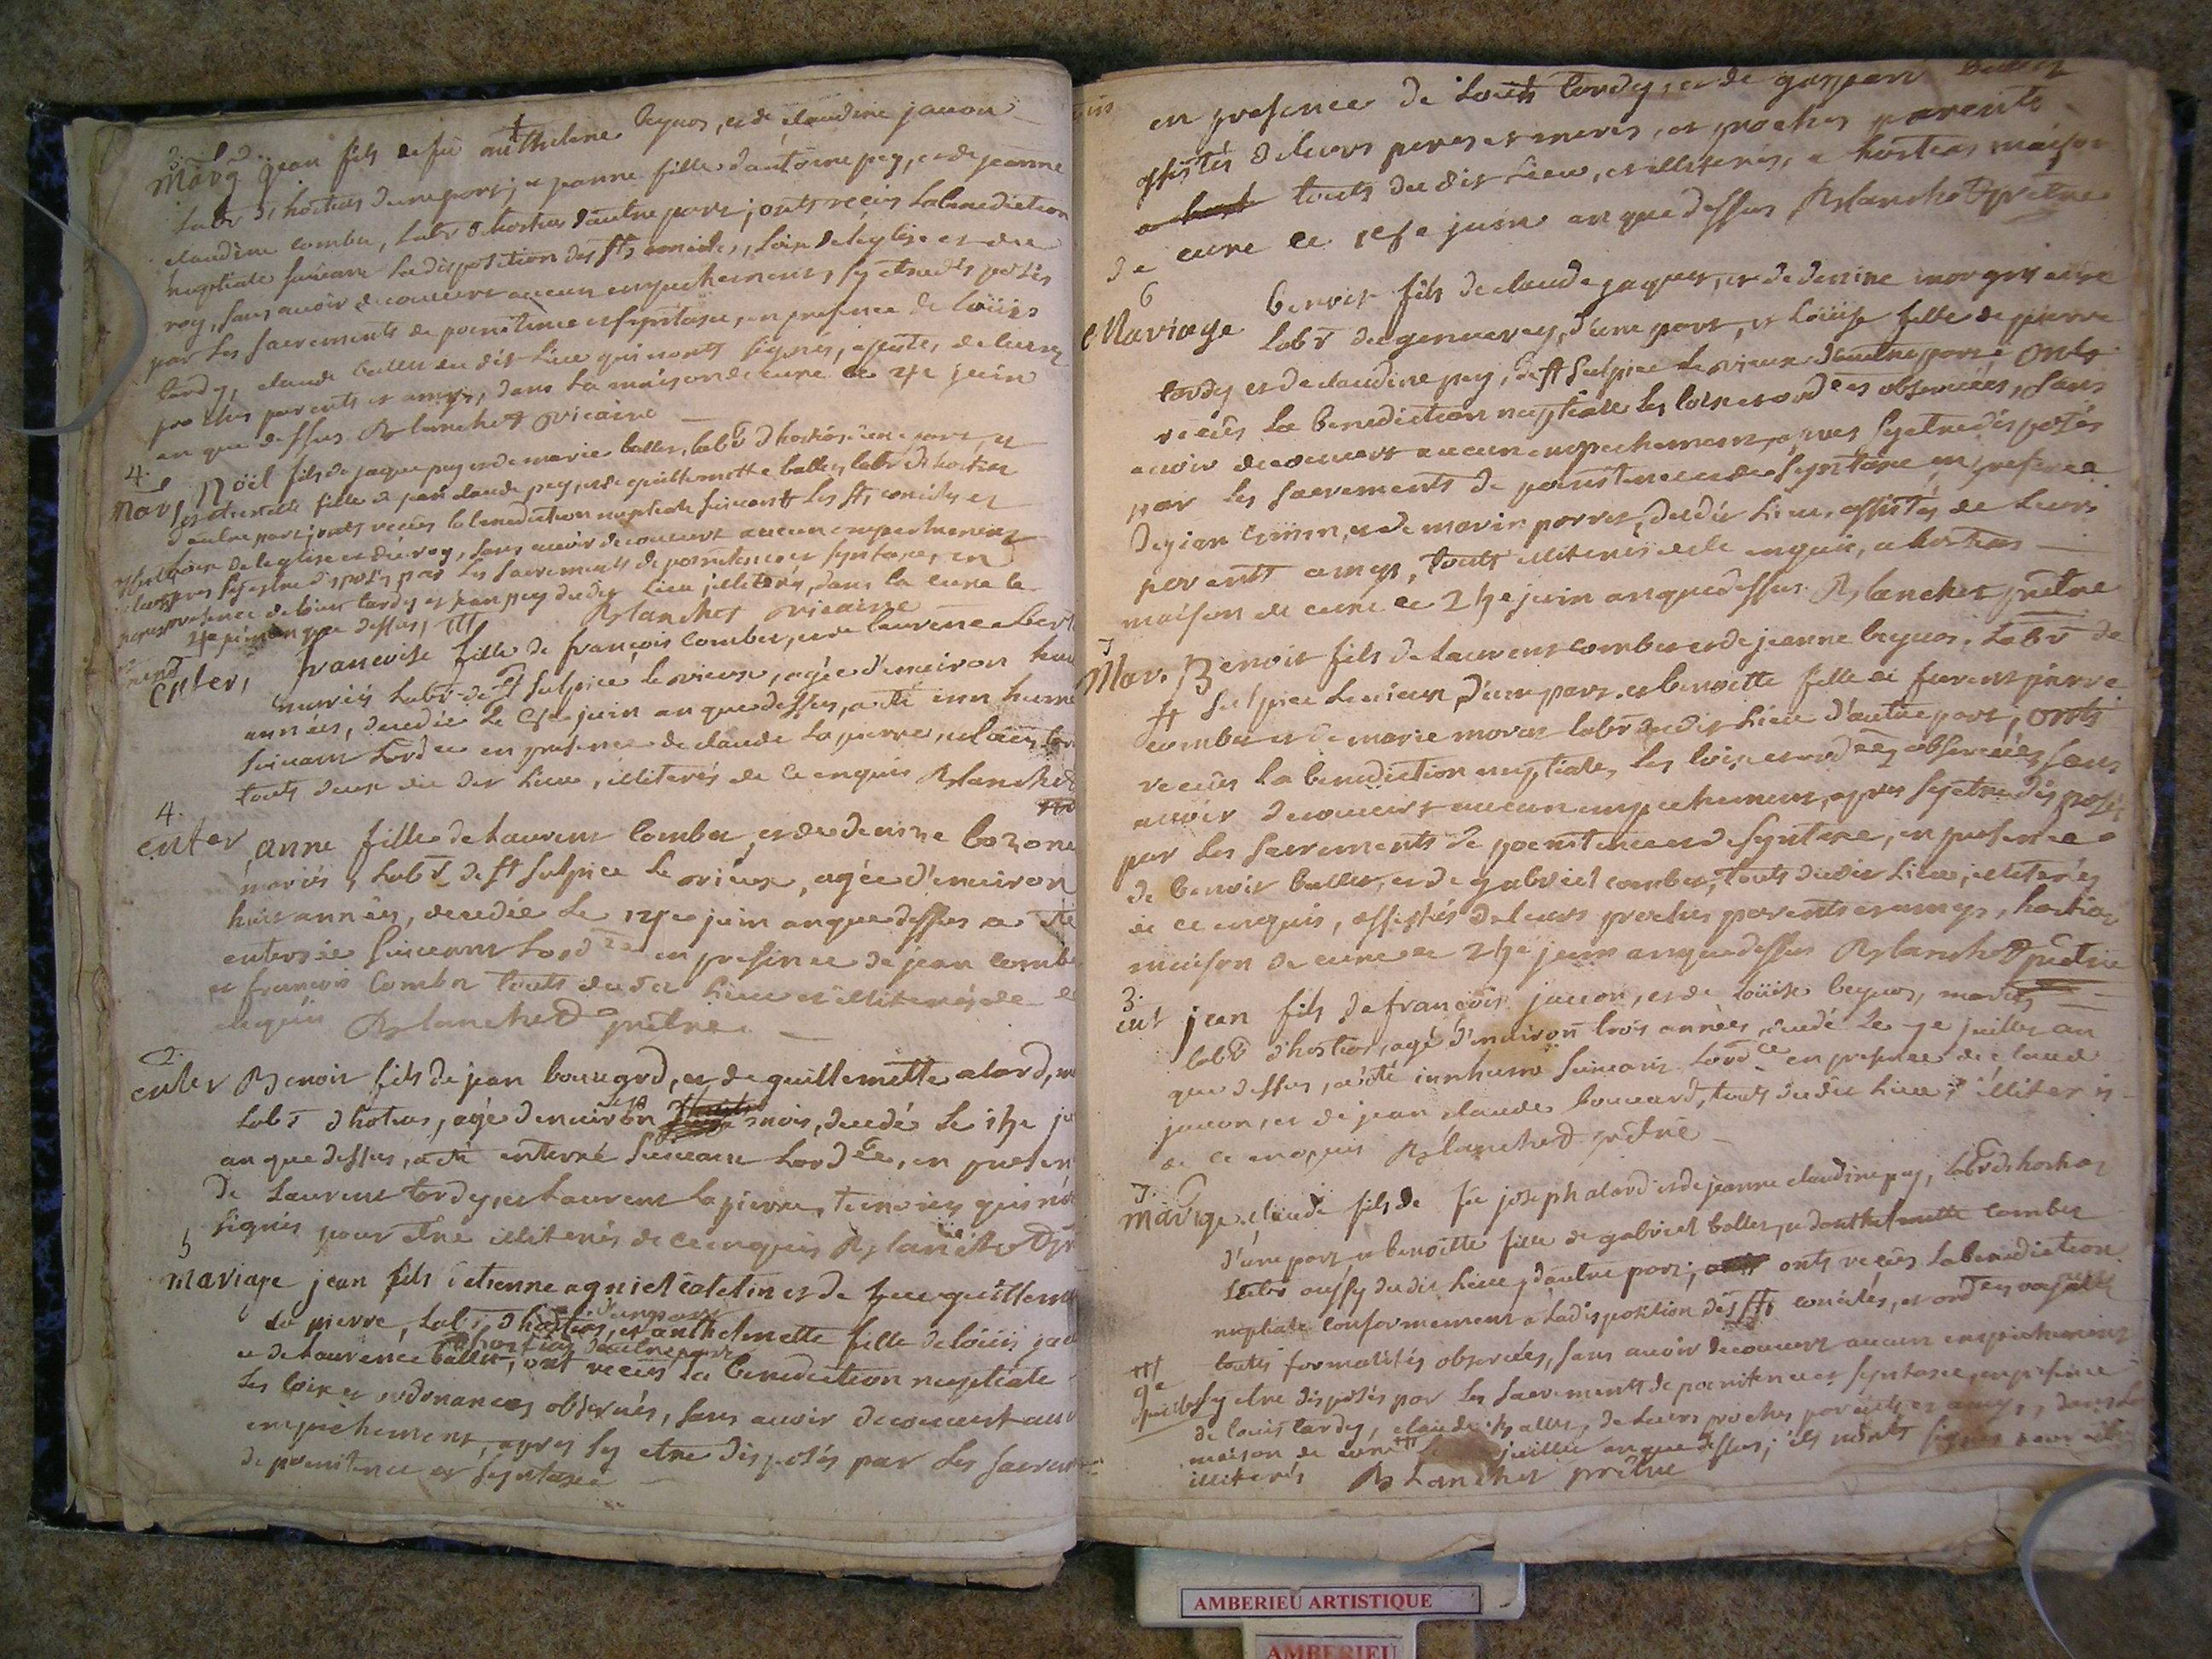 3.
Marg jean fils de fu anthelme beguos, et de claudine jacon
labr d'hostias d'une part; et jeanne fille d'antoine pey, et de jeanne
claudine combu, labr d'hostias d'autre part; onts recus la benediction
nuptiale suivant la disposition des sts conciles, loix de leglise et du
roy, sans avoir decouvert aucun empechement, sy etre dis posés
par les sacrements de poenitence et syntaxe, en presence de loüis
tardy, claude ballet du dit lieu qui nonts signés, de leurs
proches parents et amys, dans la maison de cure ce juin
an que dessus Blanchet vicaire
4.
Marg Noël fils de jaque pey et de marie ballet, labr d'hostias d'une part, et
fille de jean claude pey, et de guilhemette ballet labr d'hostias
d'autre part; onts recus la benediction nuptiale suivant les sts conciles et
loix de leglise et du roy, sans avoir decouvert aucun empechement
apres sy estre disposés par les sacrements de poenitence et syntaxe, en
presence de loüis tardy et jean pey dudit lieu illiterés, dans la cure le
juin an que dessus, Blanchet vicaire
enter, francoise fille de françois combet, et de laurence
mariés labr de st sulpice le vieux, agée d'environ
années, decedée le juin an que dessus, a eté inn humé
suivant lordce en presence de claude la pierre,
touts deux du dit lieu, illiterés de ce enquis Blanchet
4.
enter, anne fille de laurent combet, et de denise bozone
mariés, labr de st sulpice le vieux, agée d'environ
huit années, decedée le juin an que dessus a eté
enterrée suivant lordce en presence de jean combe
et françois combet touts du dit lieu et illiterés de ce
enquis Blanchet prêtre
2.
enter Benoit fils de jean bouvard, et de guillemette alard,
labr d'hostias, agé d'environ mois, decedé le
an que dessus, a eté enterré suivant lordce, en presen
de laurent tardy, et laurent la pierre, temoins qui n'ont
signés pour etre illiterés de ce enquis Blanchet
5
mariage jean fils d'etienne agniel catelin et de feue guillem
la pierre, labr d'hostias, d'une part et anthelmette fille de loüis jac
et de laurence ballet, d'hostias d'autre part ont recus la benediction nuptiale
les loix et ordonances observés, sans avoir decouvert auc
empêchement, apres sy etre disposés par les sacrem
de poenitence et syntaxe
en presence de loüis tardy, et de gaspar ballet
assistés de leurs peres et meres, et proches parents
touts du dit lieu, et illiterés, a hostias maison
de cure ce juin an que dessus Blanchet prêtre
6
Mariage benoit fils de claude jaques, et de denise
labr de genevrey, d'une part, et loüise fille de pierre
tardy et de claudine pey, de st sulpice le vieux d'autre part, onts
recus la benediction nuptiale les loix et ordces observées, sans
avoir decouvert aucun empechement, apres sy etre dis posés
par les sacrements de poenitence et de syntaxe, en presence
de jean et de marin porret, du dit lieu, assistés de leurs
parents amys, touts illiterés de ce enquis, a hostias
maison de cure ce juin an que dessus Blanchet prêtre
7
Mar. Benoit fils de laurent combet et de jeanne beguos, labr de
st sulpice le vieux, d'une part et benoitte fille de pierre
combet et de marie moras labr du dit lieu d'autre part, onts
recus la benediction nuptiale, les loix et ordces observées, sans
avoir decouvert aucun empechement, apres sy etre dis posés
par les sacrements de poenitence et de syntaxe, en presence
de benoit ballet, et de gabriel combet, touts du dit lieu, illiterés
de ce enquis, assistés de leurs proches parents et amys, hostias
maison de cure ce juin an que dessus Blanchet prêtre
3.
ent jean fils de francois jacon, et de loüise beguos, mariés
labr d'hostias, agé d'environ trois années, decedé le juillet an
que dessus, a eté innhumé suivant lordce en presence de claude
jacon, et de jean claude bouvard, touts du dit lieu, illiterés
de ce enquis Blanchet prêtre
7.
mariage. claude fils de fu joseph alard et de jeanne claudine pey, labr d'hostias
d'une part, et benoitte fille de gabriel ballet, et d'anthelmette combet
labr aussy du dit lieu, d'autre part; onts recus la benediction
nuptiale conformement a la disposition des sts conciles, et ordces
toutes formalités observées, sans avoir decouvert aucun empechement
sy etre disposés par les sacrements de poenitence et syntaxe, en presence
de louis tardy, claude ballet, de leurs proches parents et amys, dans la
maison de cure juillet an que dessus; ils nonts signés pour
illiterés Blanchet prêtre
AMBERIEU ARTISTIQUE
AMBERIEU